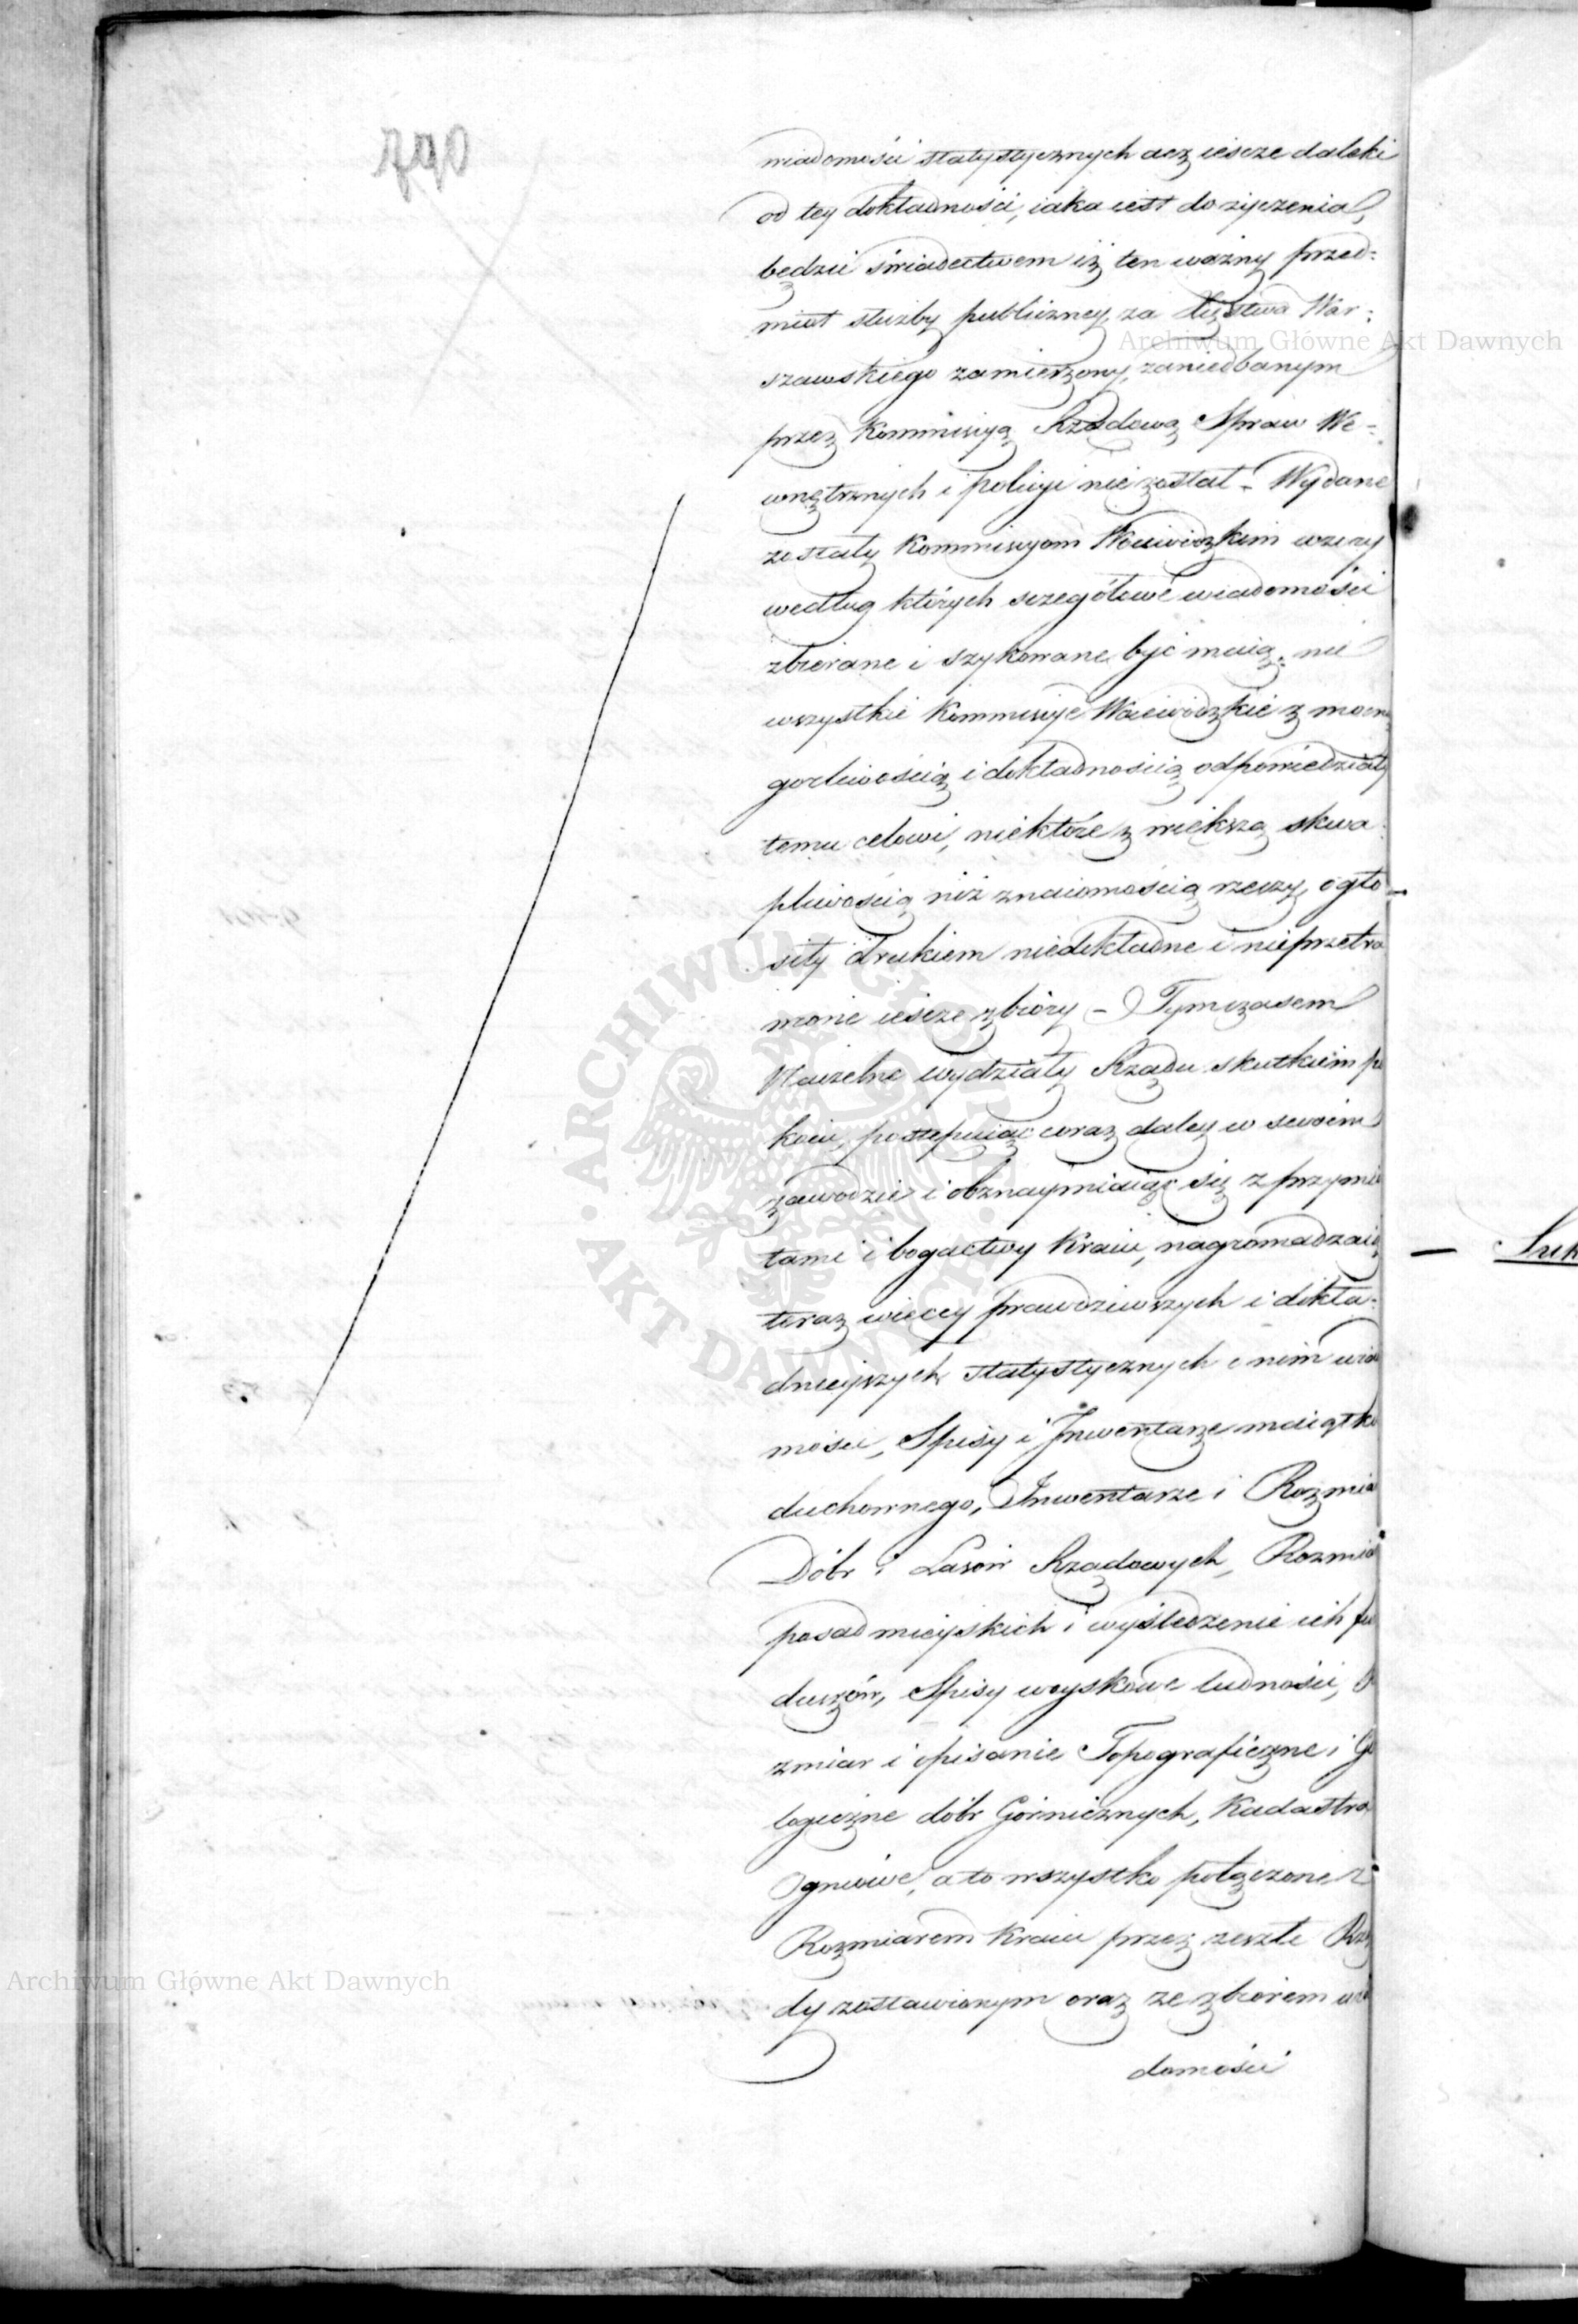 790
wiadomości statystycznych acz ieszcze daleki
od tey dokładności, iaka iest do życzenia,
będzie świadectwem iż ten ważny przed=
miot służby publiczney za Xięstwa War=
szawskiego zamierzony, zaniedbanym
przez Kommisyą Rządową Spraw We=
wnętrznych i policyi nie został – Wydane
zostały Kommisyom Woiewódzkim wzory
według których szczegółowe wiadomości
zbierane i szykowane być maią; nie
wszystkie Kommisyje Woiewódzkie z
gorliwością i dokładnością odpowiedziały
temu celowi, niektóre z większą skwa
pliwością niż znaiomością rzeczy, ogło=
siły drukiem niedokładne i nieprzetra
wione ieszcze zbiory – Tymczasem
Naczelne wydziały Rządu skutkiem po
koiu, postępuiąc coraz daley w swoim
zawodzie i obznaymiaiąc się z przymio
tami i bogactwy Kraiu, nagromadzaią
coraz więcey prawdziwszych i dokła=
dnieyszych statystycznych o nim wiado
mości, Spisy i Inwentarze maiątku
duchownego, Inwentarze i Rozmia
Dóbr i Lasów Rządowych, Rozmia
posad mieyskich i wyśledzenie ich fu
duszów, Spisy woyskowe ludności,
zmiar i opisanie Topograficzne i Geo
logiczne dóbr Górniczych, Kadastra
Ogniowe, a to wszystko połączone z
Rozmiarem Kraiu przez zeszłe Rzą
dy zostawionym oraz ze zbiorem wia
domości
Archiwum Główne Akt Dawnych
Archiwum Główne Akt Dawnych
ARCHIWUM GŁÓWNE · AKT DAWNYCH ·